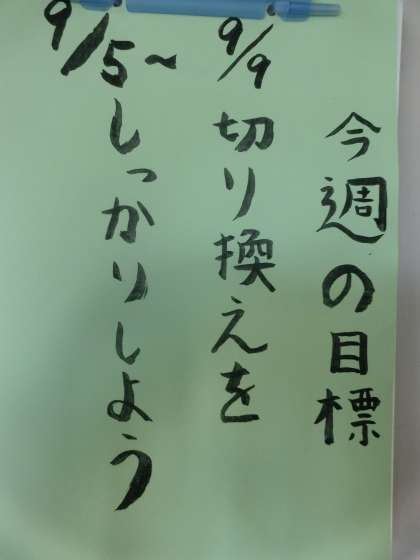 今週の目標
9/9切り換えを
9/5~しっかりしよう